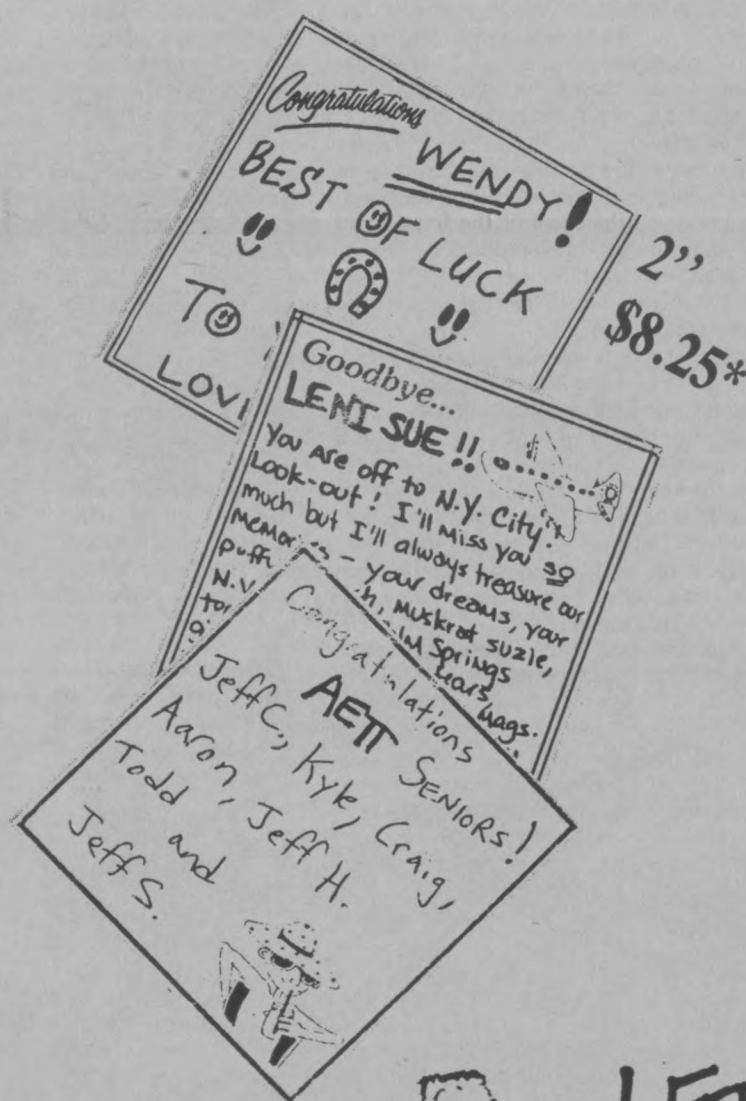 Congratulations
WENDY!
BEST OF LUCK
TO
LOV
2”
$8.25*
Goodbye...
LENI SUE !!
You are off to N.Y. City!
Look-out! I'll miss you so
much but I'll always treasure our
memories - your dreams, your
puff h, muskrat suzie,
N.Y Springs
for ears
hags.
Congratulations
AEπ SENIORS!
Jeff C., Kyle, Craig,
Aaron, Jeff H.
Todd and
Jeff S.